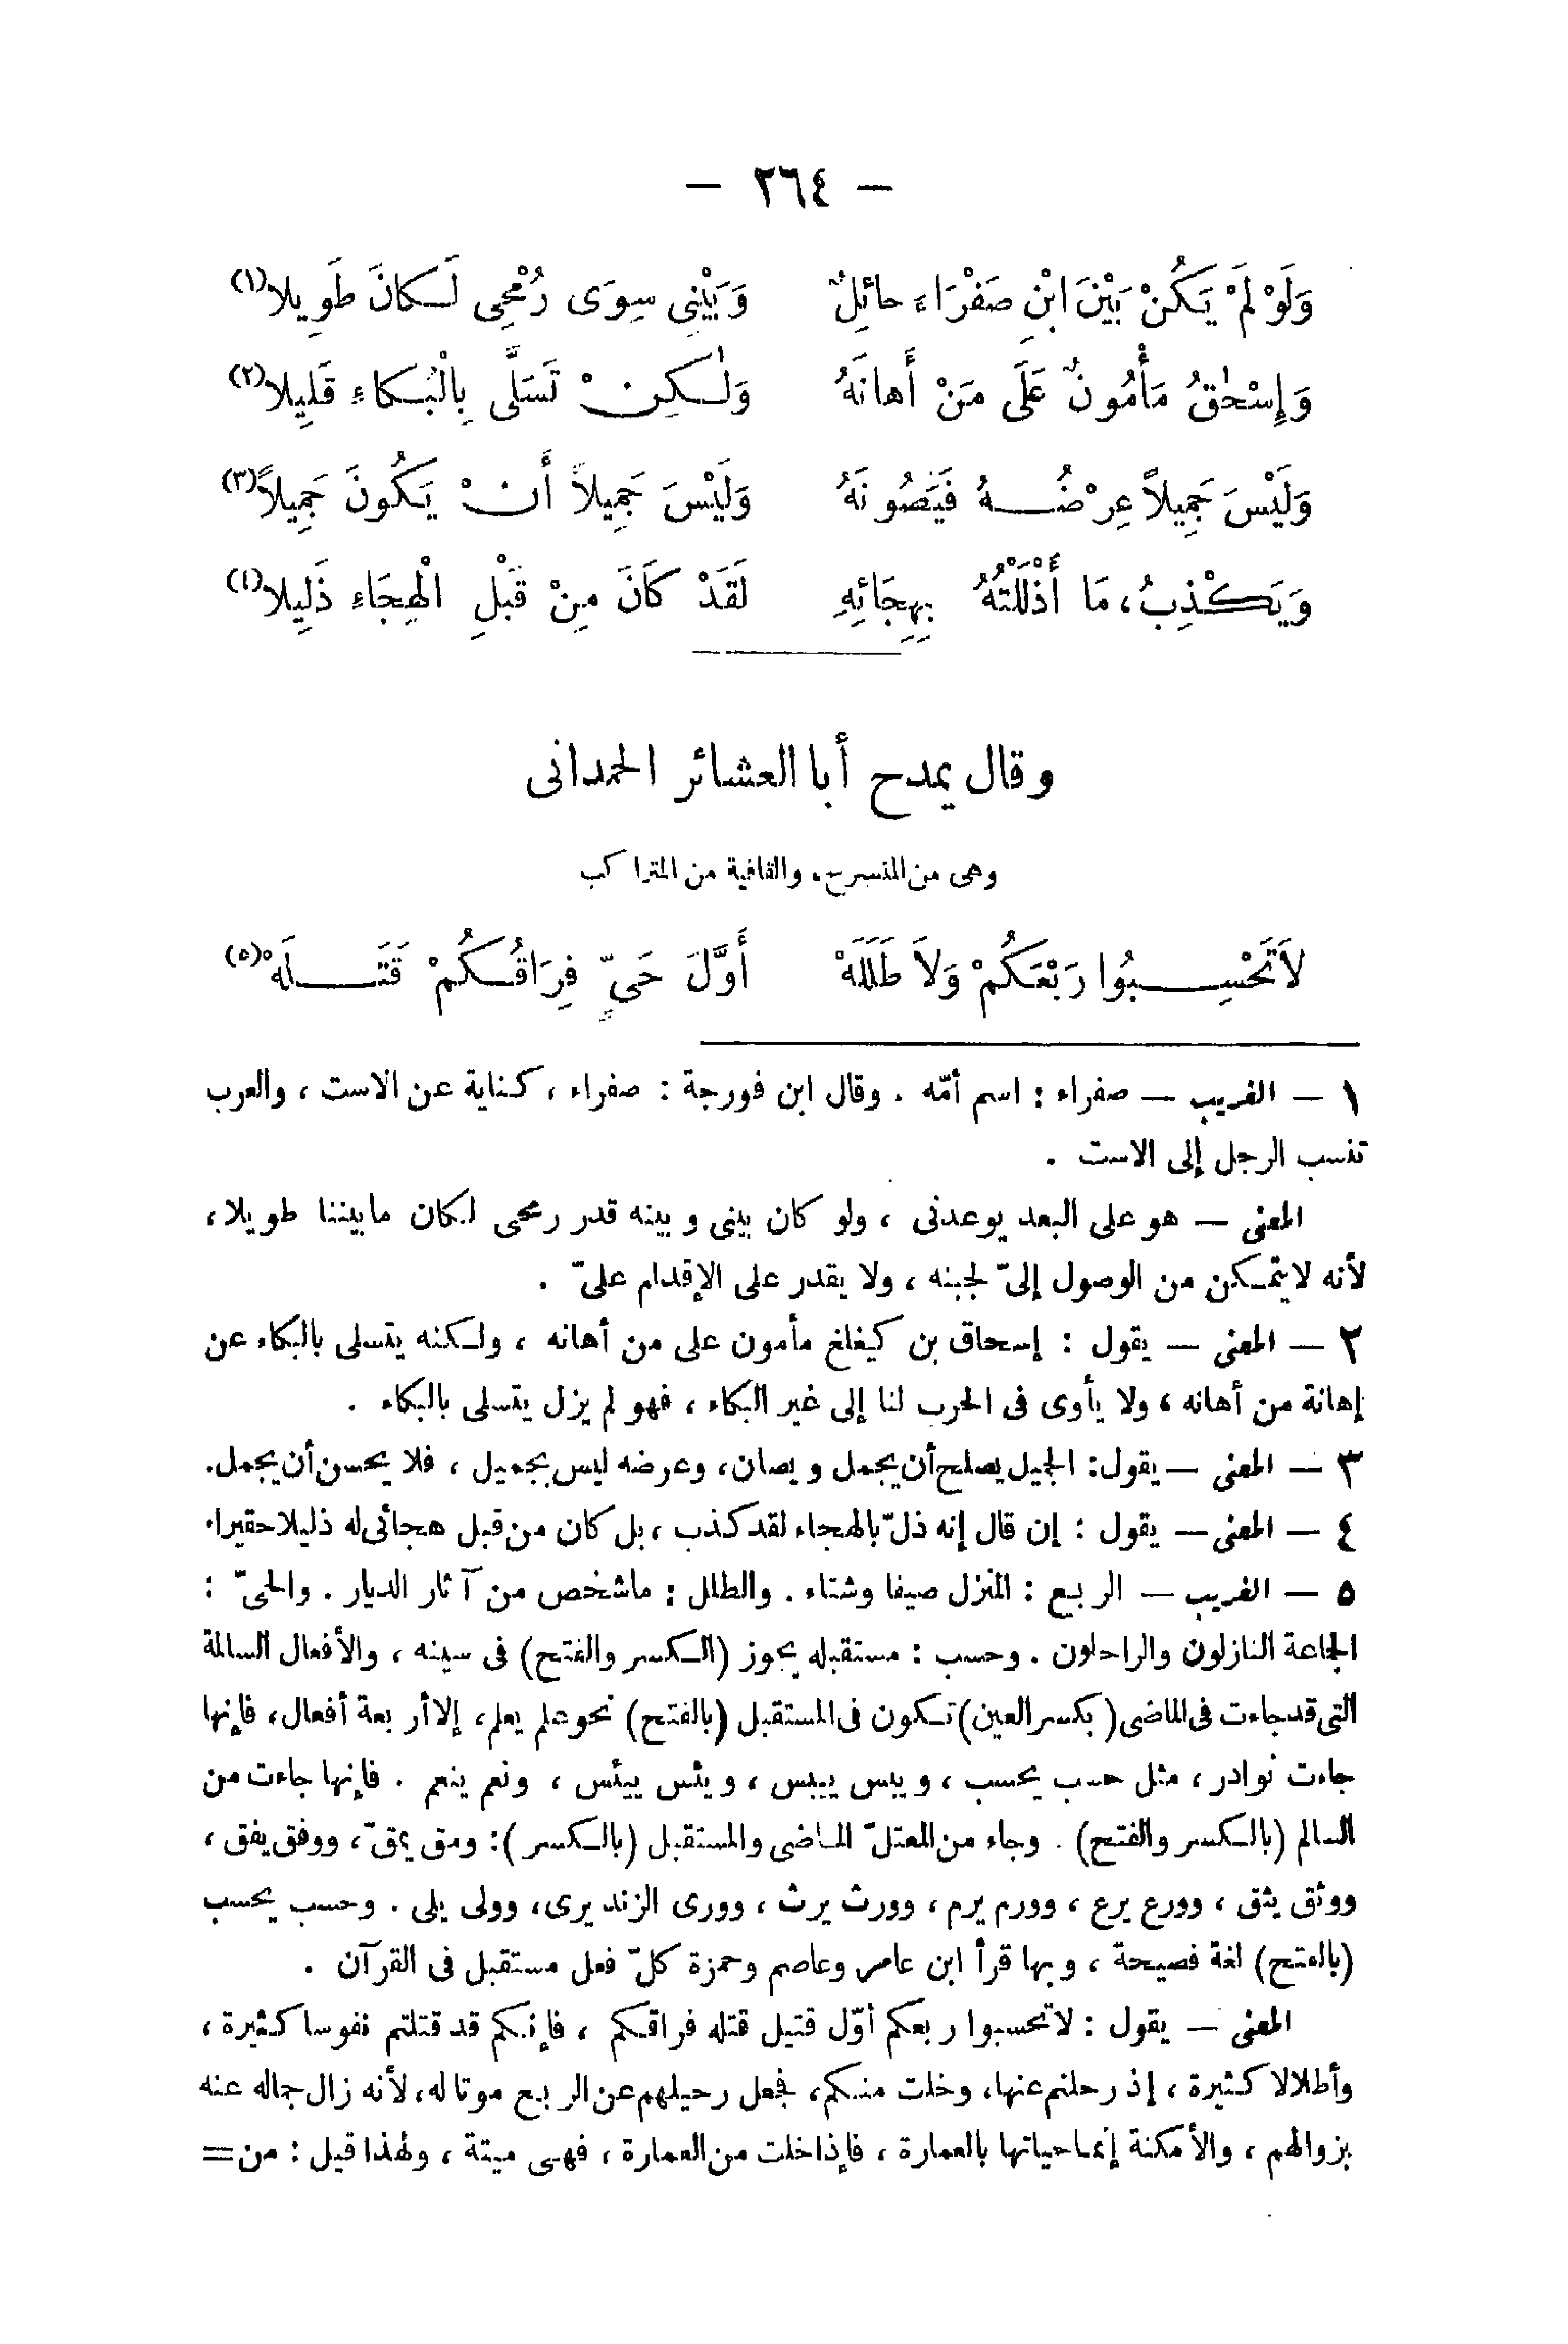 — ٢٦٤ —
وَلَوْ لَمْ يَكُنْ بَيْنَ ابْنِ صَفْرَاءَ حائِلٌ وَبَيْنِى سِوَى رُمْحِى لَكانَ طَوِيلا(١)
وَإِسْحٰقُ مَأْمُونٌ عَلَى مَنْ أَهانَهُ وَلٰكِنْ تَسَلَّى بِالْبُكاءِ قَلِيلا(٢)
وَلَيْسَ جَمِيلاً عِرْضُهُ فَيَصُونَهُ وَلَيْسَ جَمِيلاً أَنْ يَكُونَ جَمِيلاً(٣)
وَيَكْذِبُ، مَا أَذْلَلْتُهُ بِهِجَائِهِ لَقَدْ كَانَ مِنْ قَبْلِ الْهِجَاءِ ذَلِيلا(٤)
وقال يمدح أبا العشائر الحمدانى
وهى من المنسرح، والقافية من المتراكب
لاَتَحْسِبُوا رَبْعَكُمْ وَلاَ طَلَلَهْ أَوَّلَ حَىٍّ فِرَاقُكُمْ قَتَلَهْ(٥)
١ — الغريب — صفراء : اسم أمّه . وقال ابن فورجة : صفراء ، كناية عن الاست ، والعرب
تنسب الرجل إلى الاست .
المعنى — هو على البعد يوعدنى ، ولو كان بينى وبينه قدر رمحى لكان مابيننا طويلا ،
لأنه لايتمكن من الوصول إلىّ لجبنه ، ولا يقدر على الإقدام علىّ .
٢ — المعنى — يقول : إسحاق بن كيغلغ مأمون على من أهانه ، ولكنه يتسلى بالبكاء عن
إهانة من أهانه ، ولا يأوى فى الحرب لنا إلى غير البكاء ، فهو لم يزل يتسلى بالبكاء .
٣ — المعنى — يقول: الجميل يصلح أن يجمل ويصان، وعرضه ليس بجميل ، فلا يحسن أن يجمل.
٤ — المعنى — يقول : إن قال إنه ذلّ بالهجاء لقد كذب ، بل كان من قبل هجائى له ذليلا حقيرا.
٥ — الغريب — الربع : المنزل صيفا وشتاء . والطلل : ماشخص من آثار الديار . والحىّ :
الجماعة النازلون والراحلون . وحسب : مستقبله يجوز (الكسر والفتح) فى سينه ، والأفعال السالمة
التى قد جاءت فى الماضى (بكسر العين) تكون فى المستقبل (بالفتح) نحو علم يعلم، إلا أربعة أفعال، فإنها
جاءت نوادر ، مثل حسب يحسب ، ويبس ييبس ، ويئس ييئس ، ونعم ينعم . فإنها جاءت من
السالم (بالكسر والفتح) . وجاء من المعتلّ الماضى والمستقبل (بالكسر): ومق يمقّ، ووفق يفق ،
ووثق يثق ، وورع يرع ، وورم يرم ، وورث يرث ، وورى الزند يرى، وولى يلى . وحسب يحسب
(بالفتح) لغة فصيحة ، وبها قرأ ابن عامر وعاصم وحمزة كلّ فعل مستقبل فى القرآن .
المعنى — يقول : لاتحسبوا ربعكم أوّل قتيل قتله فراقكم ، فإنكم قد قتلتم نفوسا كثيرة ،
وأطلالا كثيرة ، إذ رحلتم عنها، وخلت منكم، فجعل رحيلهم عن الربع موتا له، لأنه زال جماله عنه
بزوالهم ، والأمكنة إنما حياتها بالعمارة ، فإذا خلت من العمارة ، فهى ميتة ، ولهذا قيل : من =